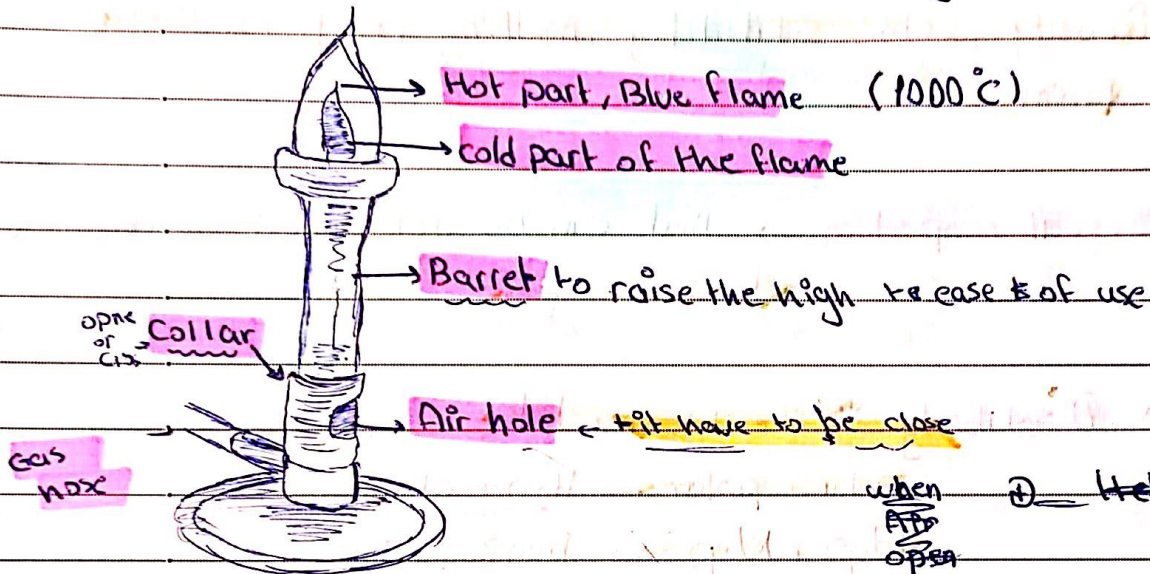 Hot part, Blue flame (1000°C)
cold part of the flame
Barret to raise the high to ease of use
opne
or
Collar
Air hole ← it have to be close
Gas
hose
when
Air
open